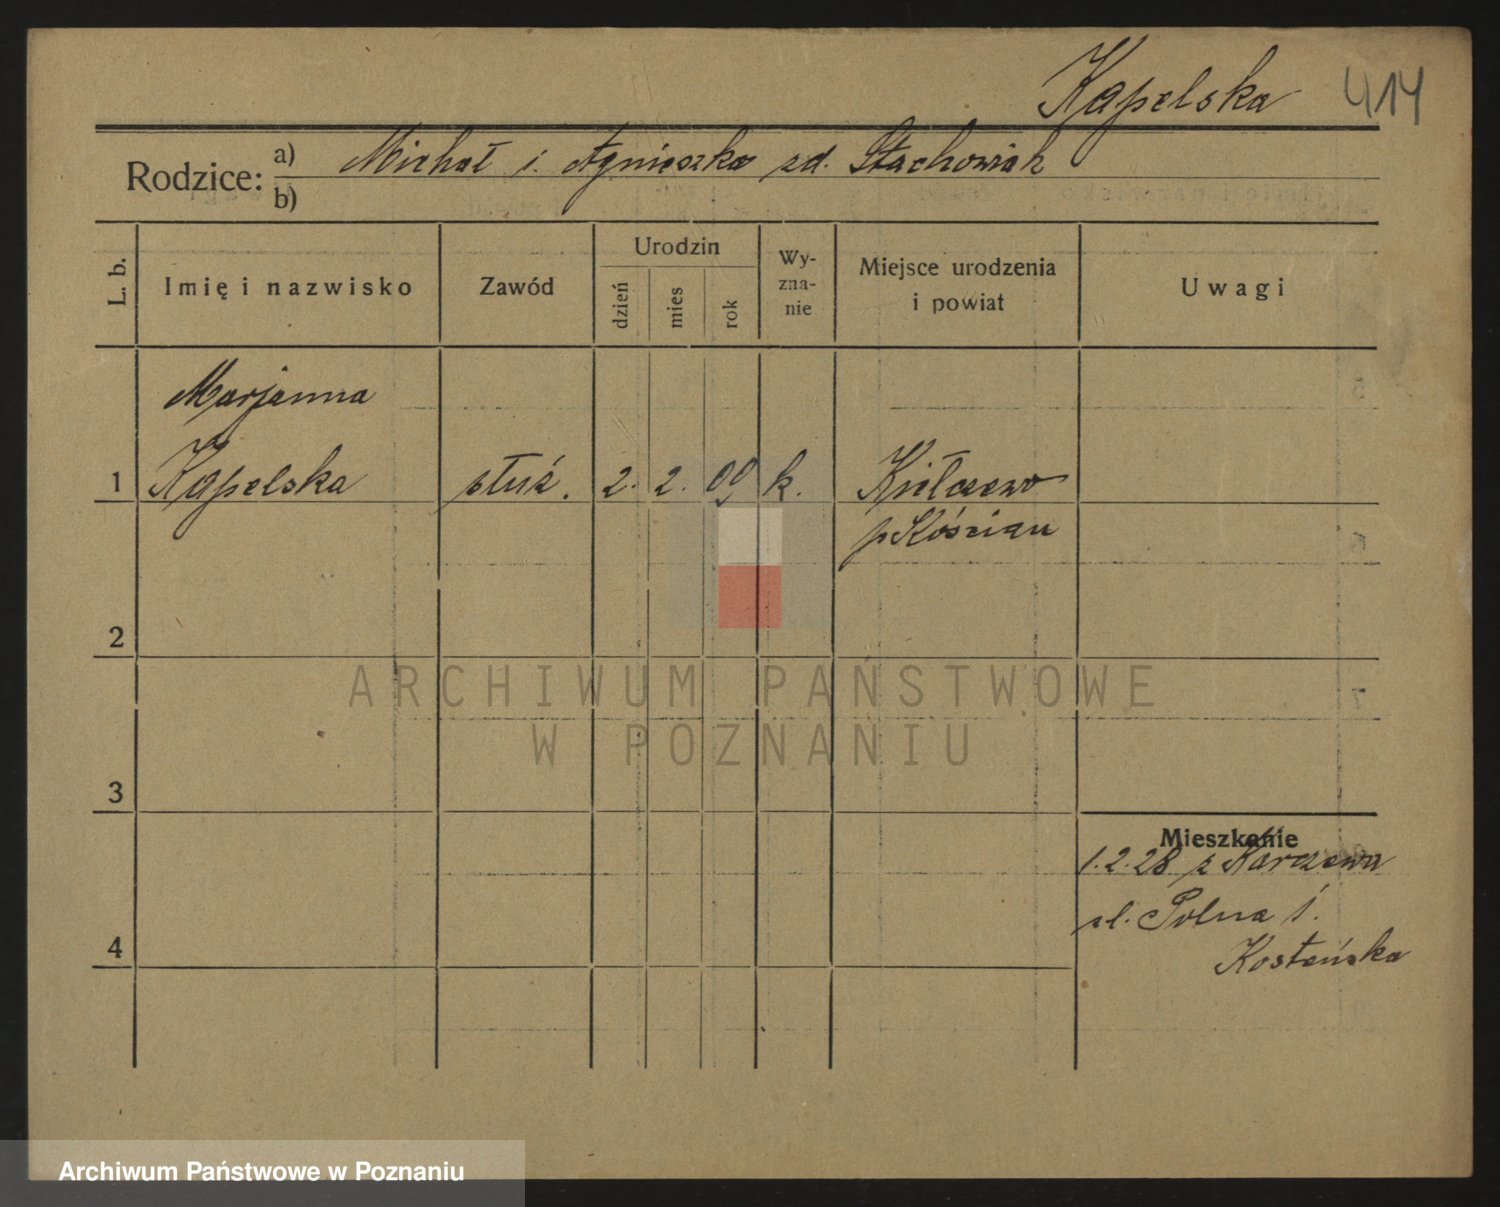 Kąpelska 414
Rodzice: a) Michał i. Agnieszka zd. Stachowiak
b)
L. b. Imię i nazwisko Zawód Urodzin dzień mies rok Wy-zna-nie Miejsce urodzenia i powiat Uwagi
Marjanna
1 Kąpelska służ. 2. 2. 09 k. Kiełczewo
p Kościan
2
ARCHIWUM PAŃSTWOWE
W POZNANIU
3
Mieszkanie
1.2.28 z Karczewa
ul. Polna 1.
4 Kosteńska
Archiwum Państwowe w Poznaniu